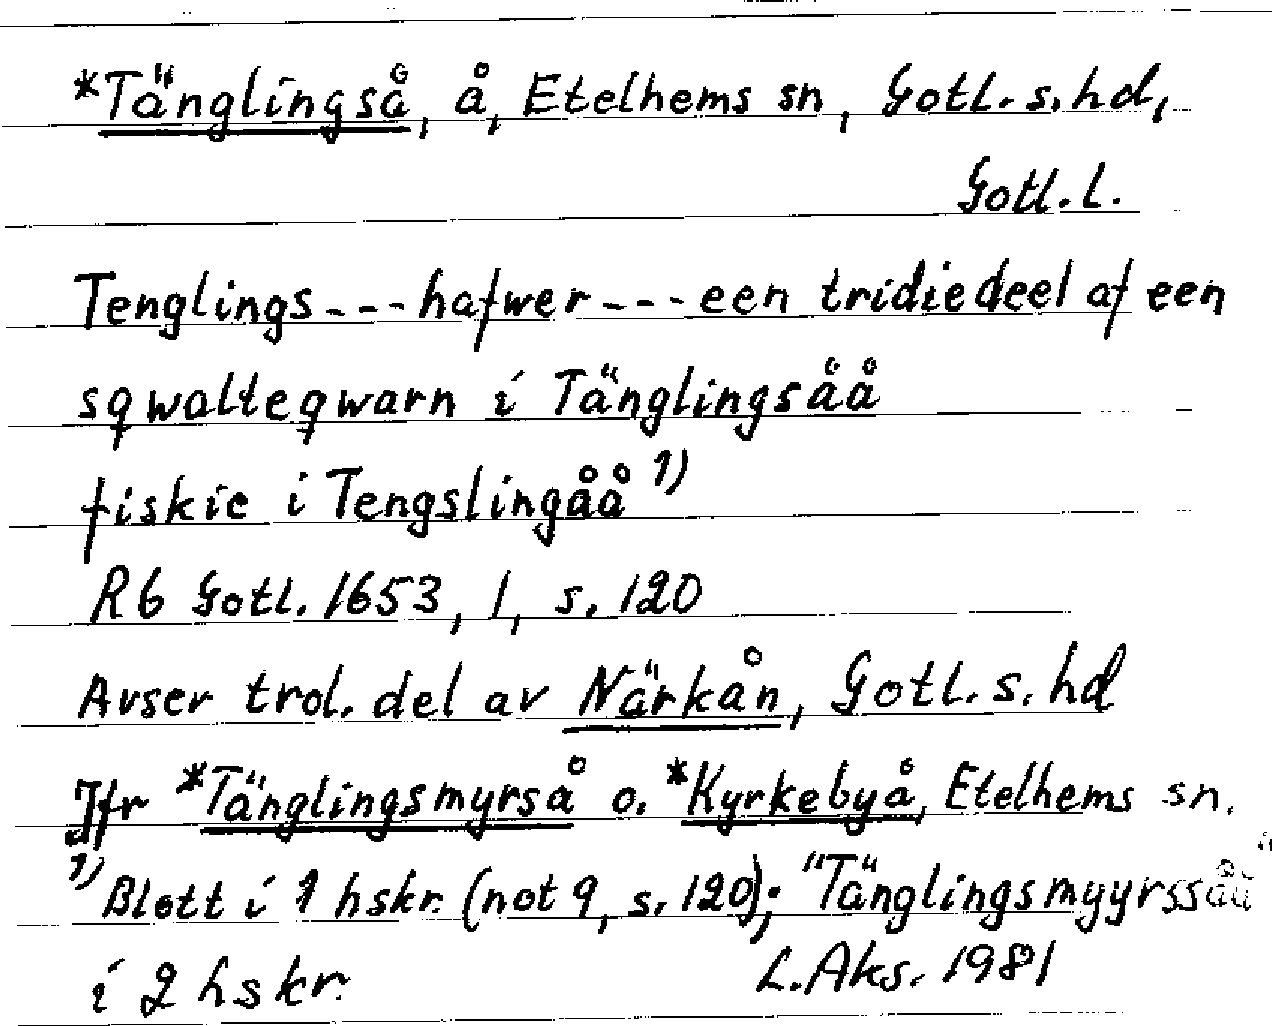 *Tänglingså, å, Etelhems sn, Gotl. s. hd,
Gotl. l.
Tenglings---hafwer---een tridiedeel af een
sqwalteqwarn i Tänglingsåå
fiskie i Tengslingåå 1)
Rb Gotl. 1653, 1, s. 120
Avser trol. del av Närkån, Gotl. s. hd
Jfr *Tänglingsmyrså o. *Kyrkebyå, Etelhems sn.
1) Blott i 1 hskr. (not 9, s. 120); "Tänglingsmyyrssåå"
i 2 hskr.
L. Aks. 1981